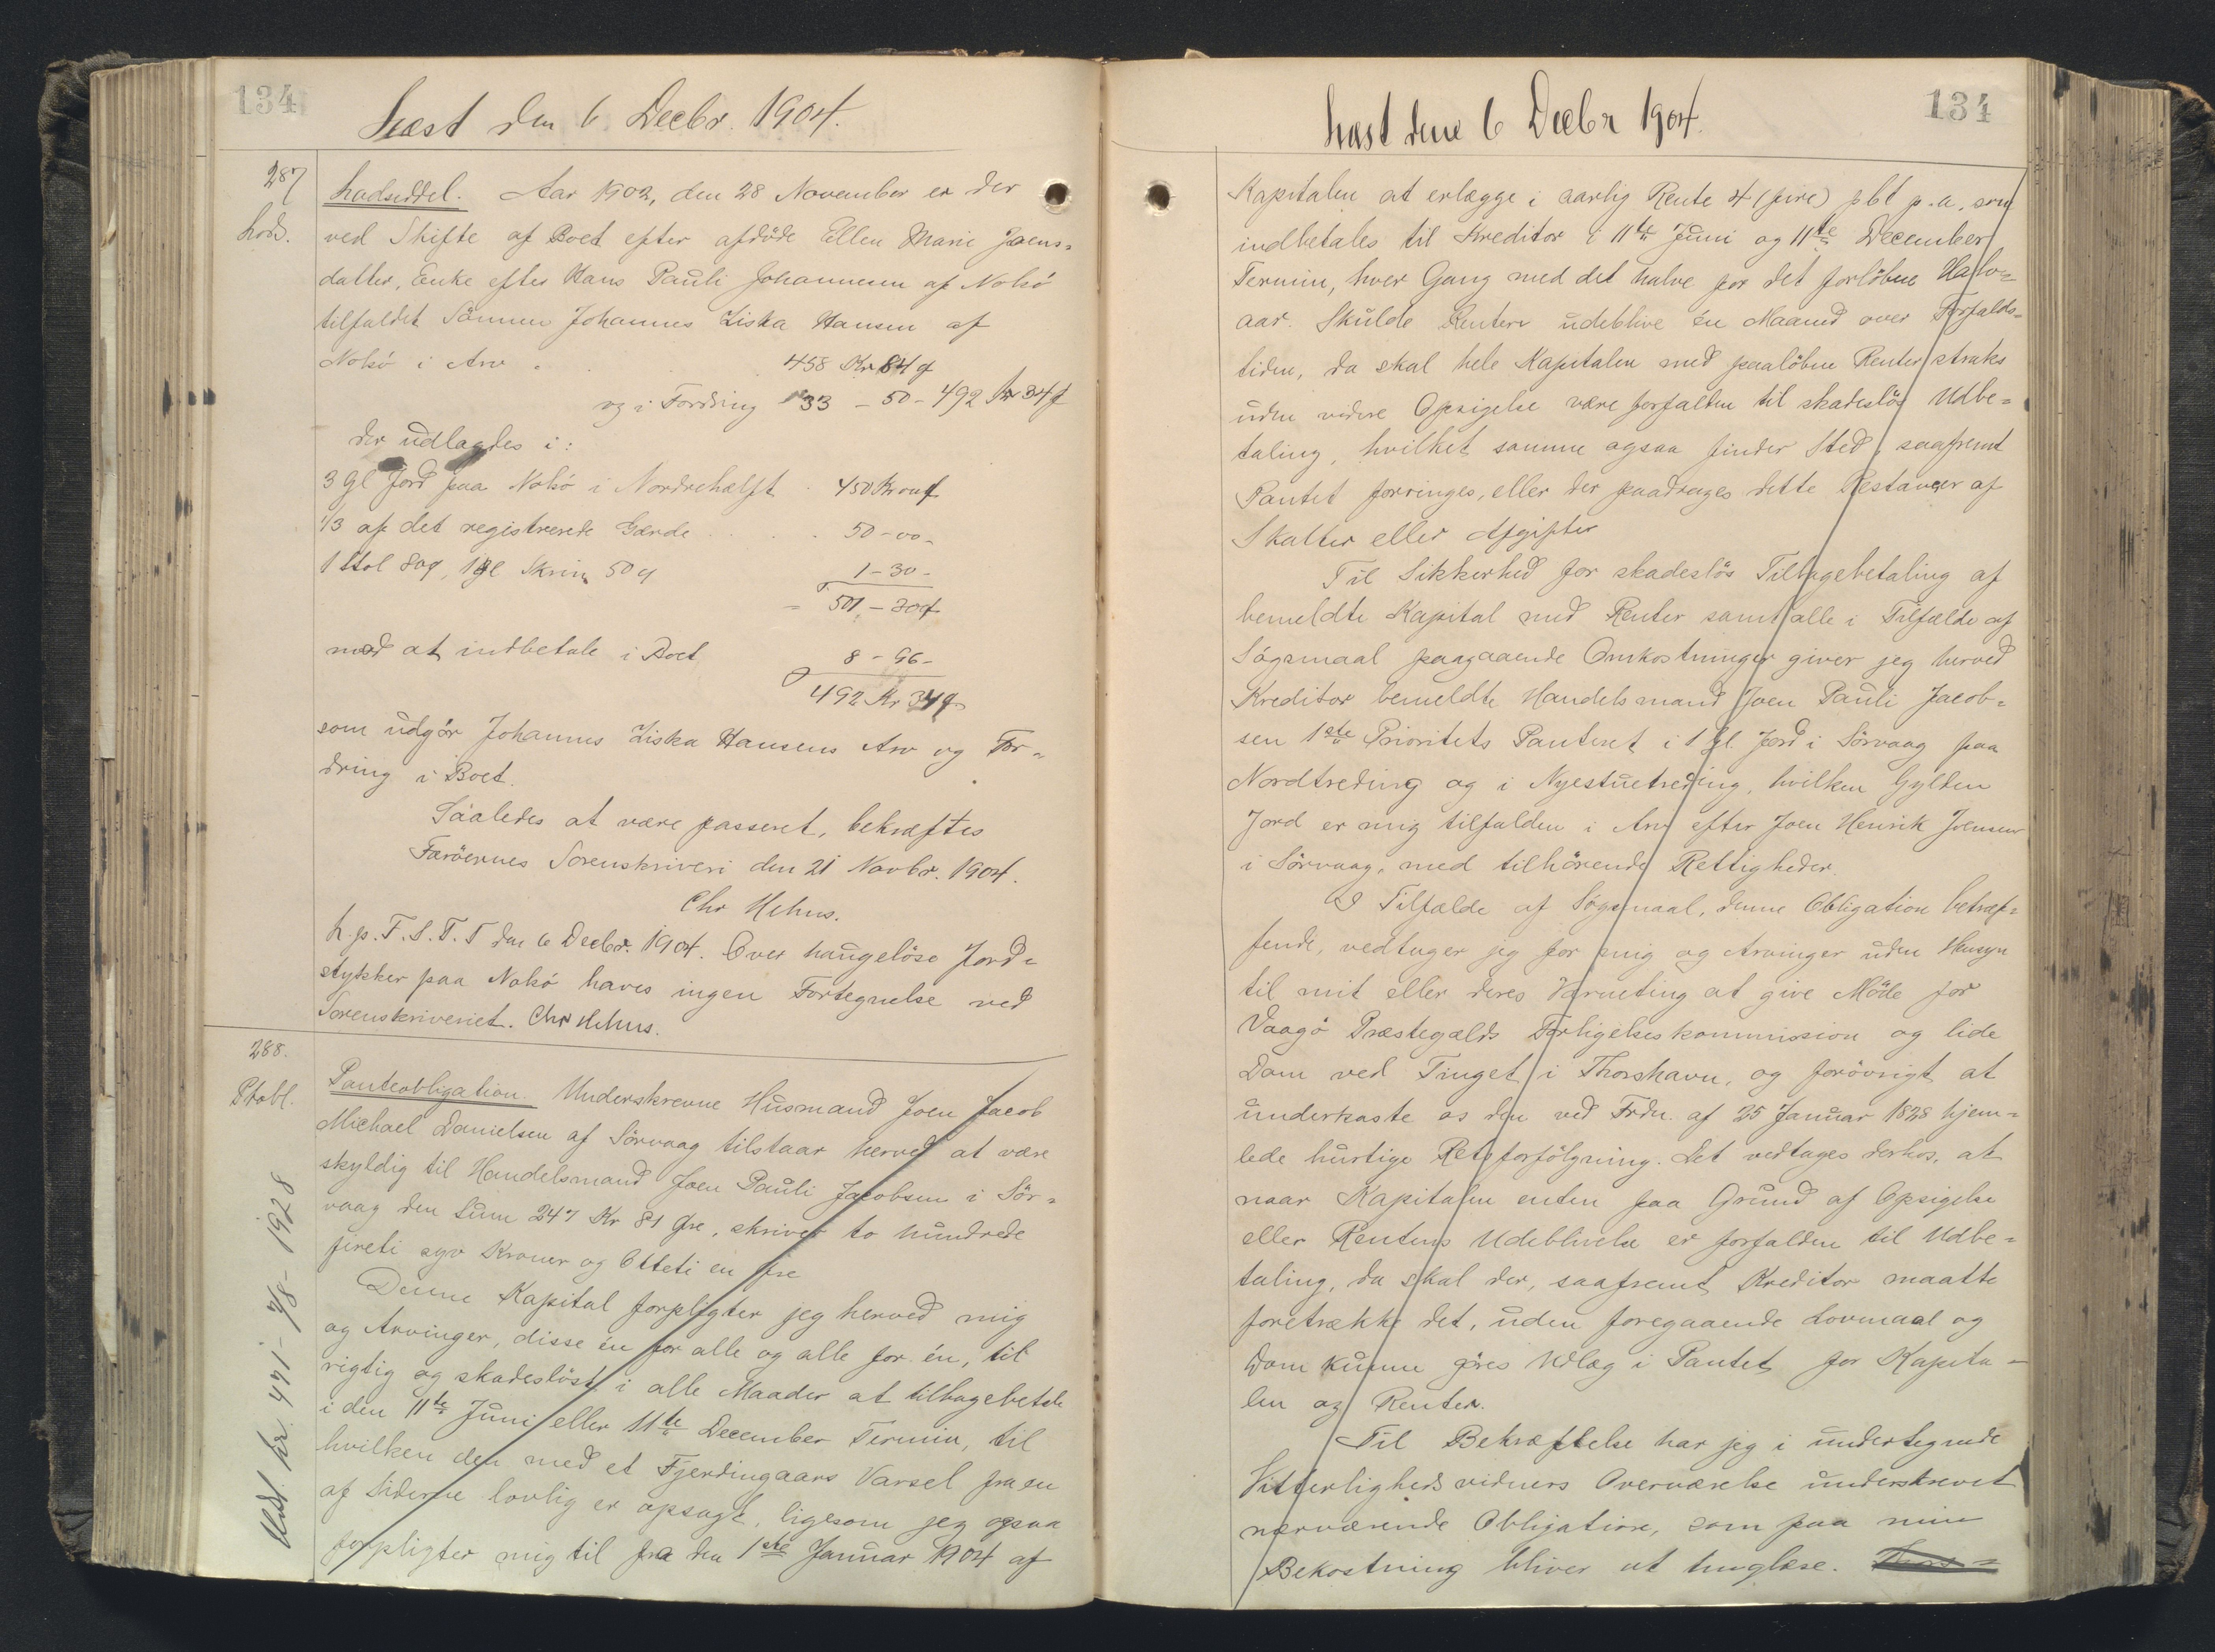 134
Læst den 6 Decbr. 1904.
287
Lods.
Lodseddel. Aar 1902, den 28 November er der
ved Skifte af Boet efter afdöde Ellen Marie Joens=
datter, Enke efter Hans Pauli Johannesen af Nolsö
tilfaldet Sönnen Johannes Ziska Hansen af
Nolsö i Arv . . 458 Kr 84 Ø
og i Fordring 33 - 50 - 492 Kr 34 Ø
der udlagdes i:
3 Gl Jord paa Nolsö i Nordrehælft . 450 Kr 00 Ø
1/3 af det registrerede Gærde . . . . 50 - 00 -
1 Stol 80 Ø, 1 gl Skrin 50 Ø 1 - 30 -
= 501 - 30 Ø
mod at indbetale i Boet 8 - 96 -
492 Kr 34 Ø
som udgör Johannes Ziska Hansens Arv og For=
dring i Boet.
Saaledes at være passeret, bekræftes
Færöernes Sorenskriveri den 21 Novbr. 1904.
Chr Mehus.
L. p. F. S. T. T den 6 Decbr. 1904. Over haugelöse Jord=
stykker paa Nolsö haves ingen Fortegnelse ved
Sorenskriveriet. Chr Mehus.
288.
Ptobl.
Udst. hr. 471 - 7/8 - 1928
Panteobligation. Underskrevne Husmand Joen Jacob
Michael Danielsen af Sörvaag tilstaar herved at være
skyldig til Handelsmand Joen Pauli Jacobsen i Sör=
vaag den Sum 247 Kr 81 Øre, skriver to hundrede
fireti syv Kroner og Otteti en Øre
Denne Kapital forpligter jeg herved mig
og Arvinger, disse én for alle og alle for én, til
rigtig og skadeslöst i alle Maader at tilbagebetale
i den 11te Juni eller 11te December Termin, til
hvilken den med et Fjerdingaars Varsel fra en
af Siderne lovlig er opsagt, ligesom jeg ogsaa
forpligter mig til fra den 1ste Januar 1904 af
134
Læst den 6 Decbr 1904.
Kapitalen at erlægge i aarlig Rente 4 (fire) pCt p.a. som
indbetales til Kreditor i 11te Juni og 11te December
Termin, hver Gang med det halve for det forlöbne Halv=
aar. Skulde Renterne udeblive én Maaned over Forfalds=
tiden, da skal hele Kapitalen med paalöbne Renter straks
uden videre Opsigelse være forfalden til skadeslös Udbe=
taling, hvilket samme ogsaa finder Sted, saafremt
Pantet forringes, eller der paadrages dette Restancer af
Skatter eller Afgifter
Til Sikkerhed for skadeslös Tilbagebetaling af
bemeldte Kapital med Renter samt alle i Tilfælde af
Sögsmaal paagaaende Omkostninger giver jeg herved
Kreditor bemeldte Handelsmand Joen Pauli Jacob=
sen 1ste Prioritets Panteret i 1 Gl. Jord i Sörvaag paa
Nordtreding og i Nyestuetreding, hvilken Gylden
Jord er mig tilfalden i Arv efter Joen Henrik Joensen
i Sörvaag, med tilhörende Rettigheder.
I Tilfælde af Sögsmaal, denne Obligation betræf=
fende, vedtager jeg for mig og Arvinger uden Hensyn
til mit eller deres Værneting at give Möde for
Vaagö Præstegælds Forligelseskommission og lide
Dom ved Tinget i Thorshavn, og forövrigt at
underkaste os den ved Frdn. af 25 Januar 1828 hjem=
lede hurtige Retsforfölgning. Det vedtages derhos, at
naar Kapitalen enten paa Grund af Opsigelse
eller Rentens Udeblivelse er forfalden til Udbe=
taling, da skal der, saafremt Kreditor maatte
foretrække det, uden foregaaende Lovmaal og
Dom kunne göres Udlæg i Pantet for Kapita=
len og Renter.
Til Bekræftelse har jeg i undertegnede
Vitterlighedsvidners Overværelse underskrevet
nærværende Obligation, som paa min
Bekostning bliver at tinglæse.